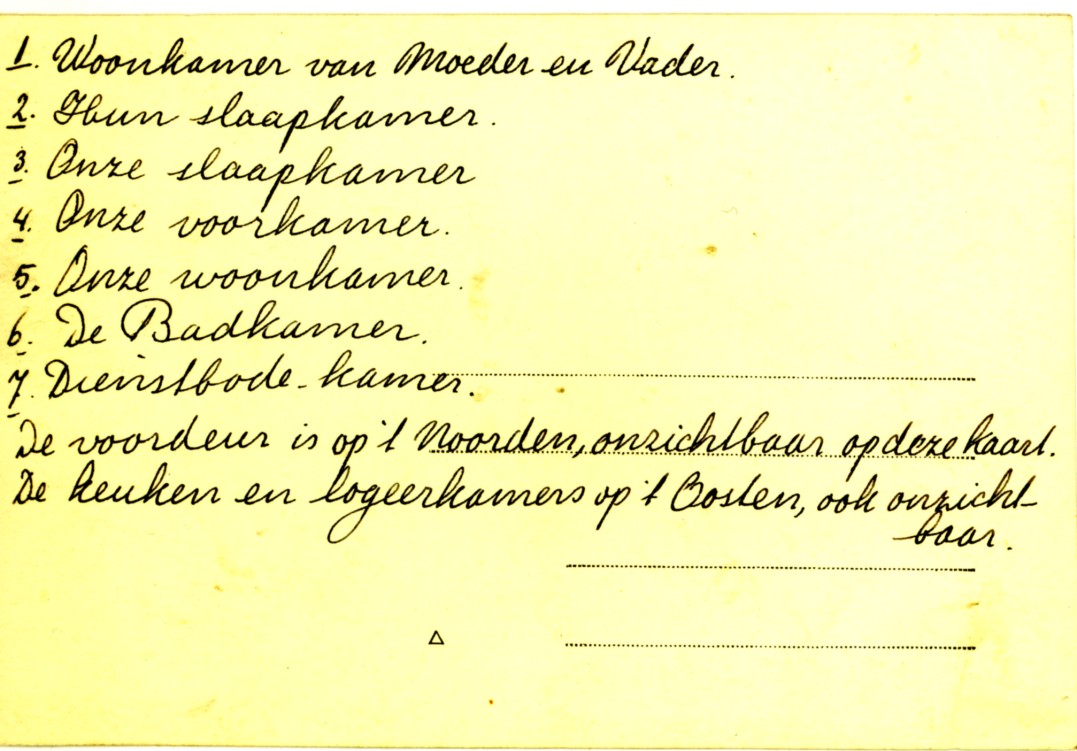 1. Woonkamer van Moeder en Vader.
2. Hun slaapkamer.
3. Onze slaapkamer
4. Onze voorkamer.
5. Onze woonkamer.
6. De Badkamer.
7. Dienstbode-kamer.
De voordeur is op 't Noorden, onzichtbaar op deze kaart.
De keuken en logeerkamers op 't Oosten, ook onzicht-
baar.